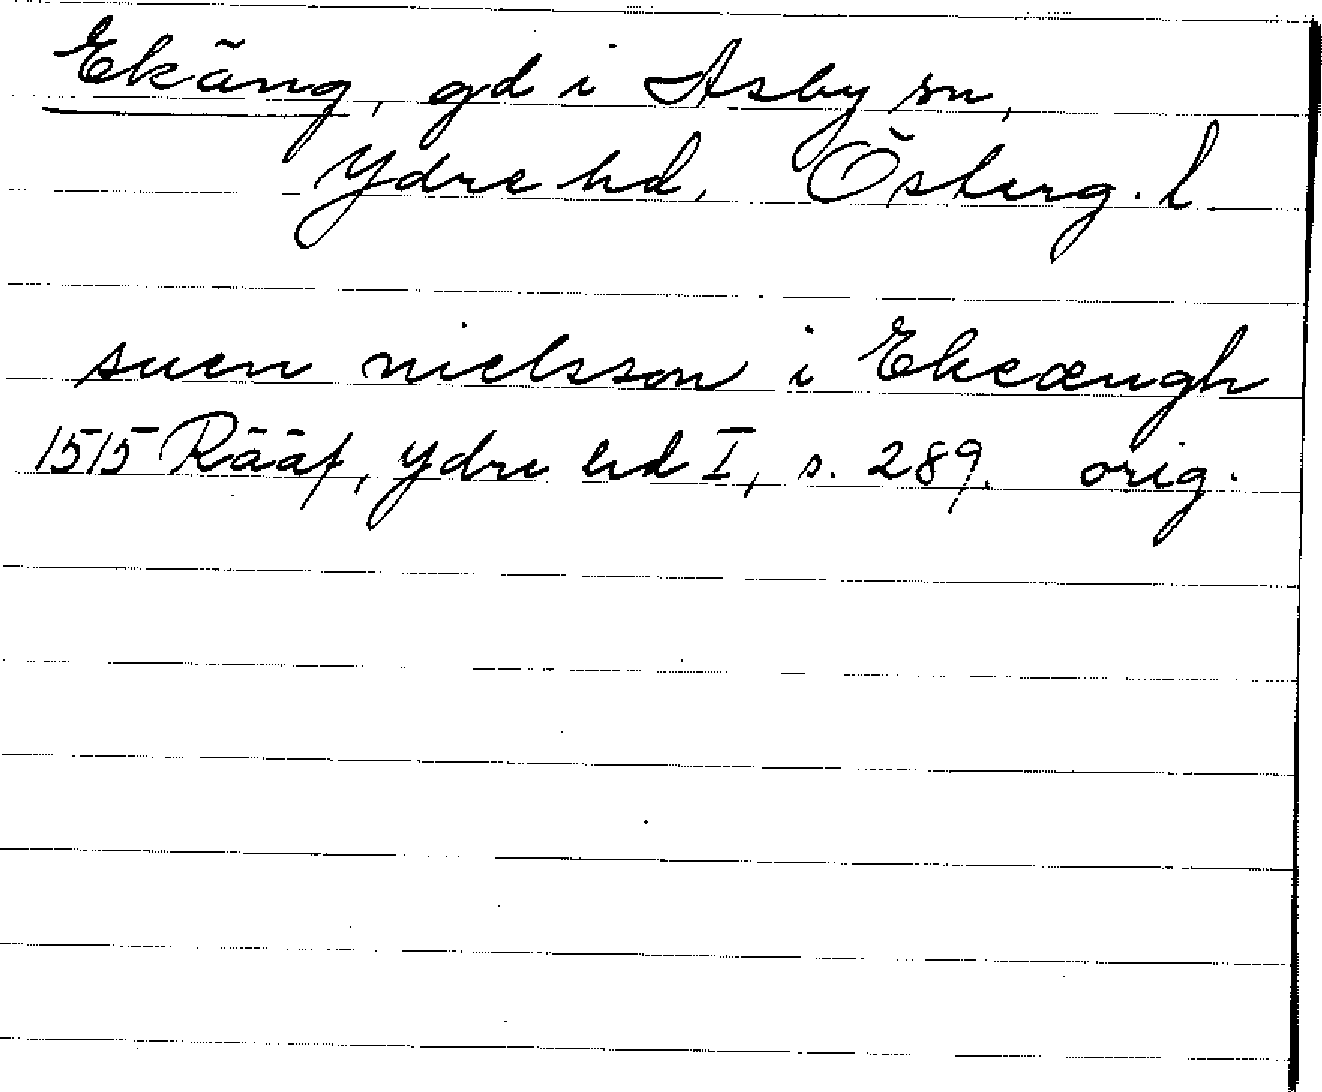 Ekäng, gd i Asby sn,
Ydre hd, Österg. l
suen nielsson i Ekeængh
1515 Rääf, Ydre hd I, s. 289. orig.